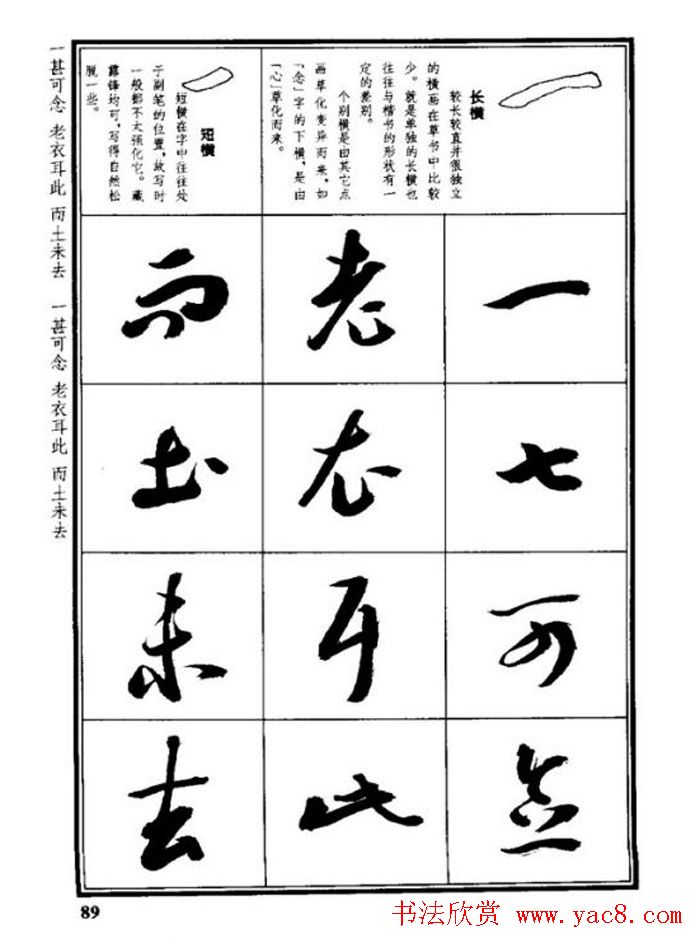 长横
较长较直并很独立
的横画在草书中比较
少。就是单独的长横也
往往与楷书的形状有一
定的差别。
个别横是由其它点
画草化变异而来,如
「念」字的下横,是由
「心」草化而来。
短横
短横在字中往往处
于副笔的位置,故写时
一般都不太强化它。藏
露锋均可,写得自然松
脱一些。
一甚可念
老衣耳此
而土未去
一甚可念 老衣耳此 而土未去 一甚可念 老衣耳此 而土未去
89
书法欣赏 www.yac8.com